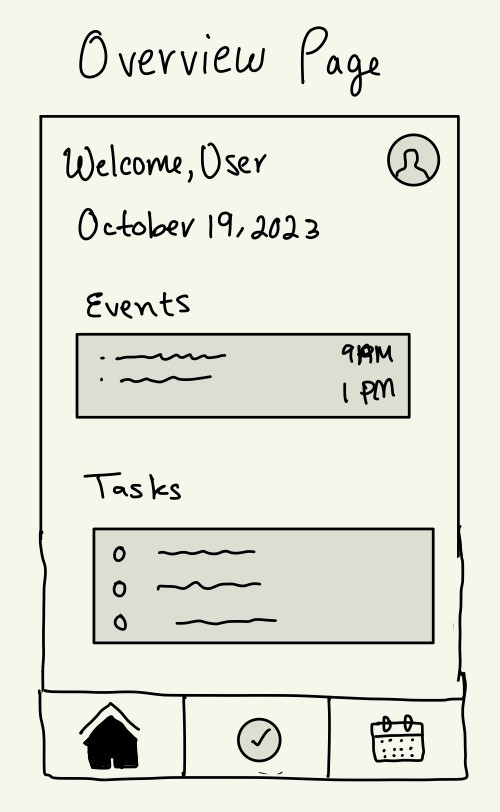 Overview Page
Welcome, User
October 19, 2023
Events
9AM
1 PM
Tasks